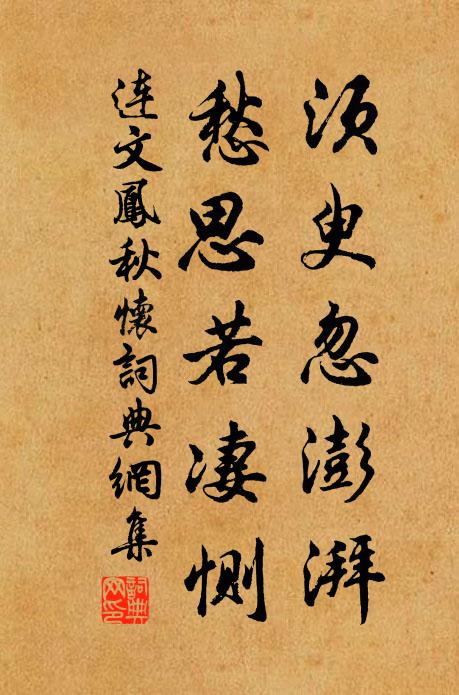 須臾忽澎湃
愁思若凄惻
连文鳳秋懷詞典網集
詞典網印